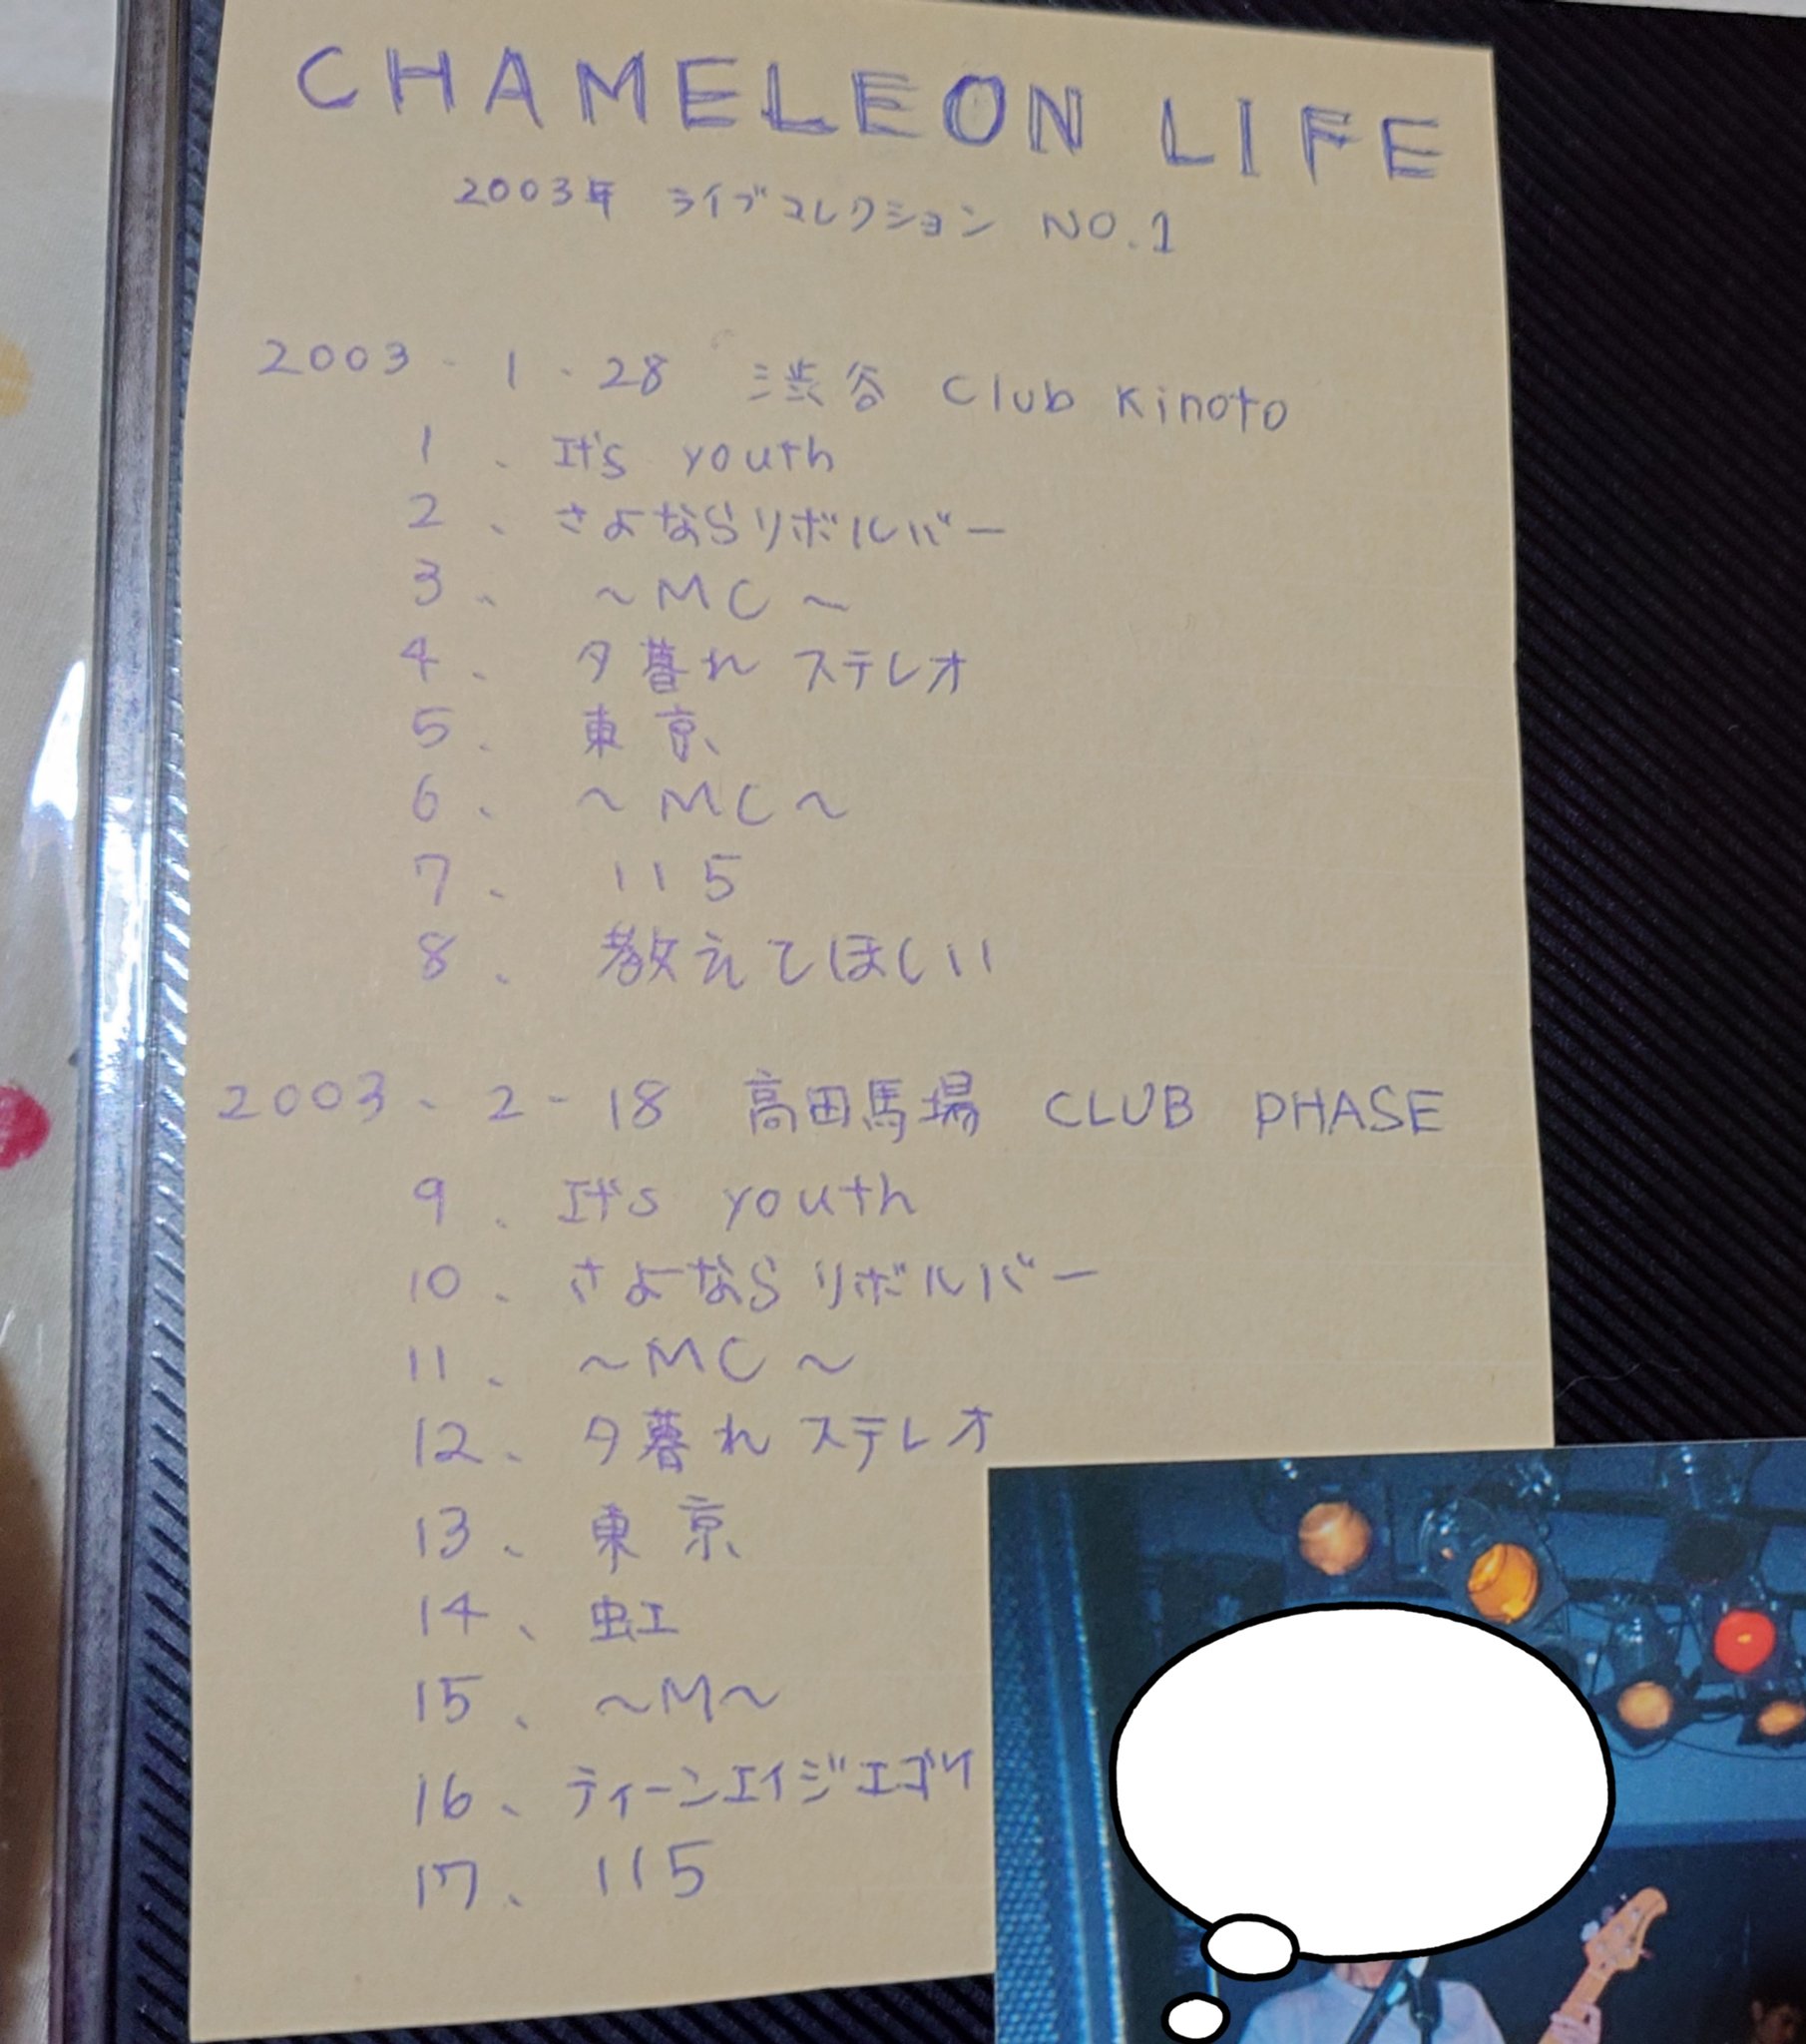 CHAMELEON LIFE
2003年 ライブコレクション NO.1
2003.1.28 渋谷 Club Kinoto
1、It's youth
2、さよならリボルバー
3、~MC~
4、夕暮れステレオ
5、東京
6、~MC~
7、115
8、教えてほしい
2003.2-18 高田馬場 CLUB PHASE
9、It's youth
10、さよならリボルバー
11、~MC~
12、夕暮れステレオ
13、東京
14、虹
15、~M~
16、ティーンエイジエゴイ
17、115